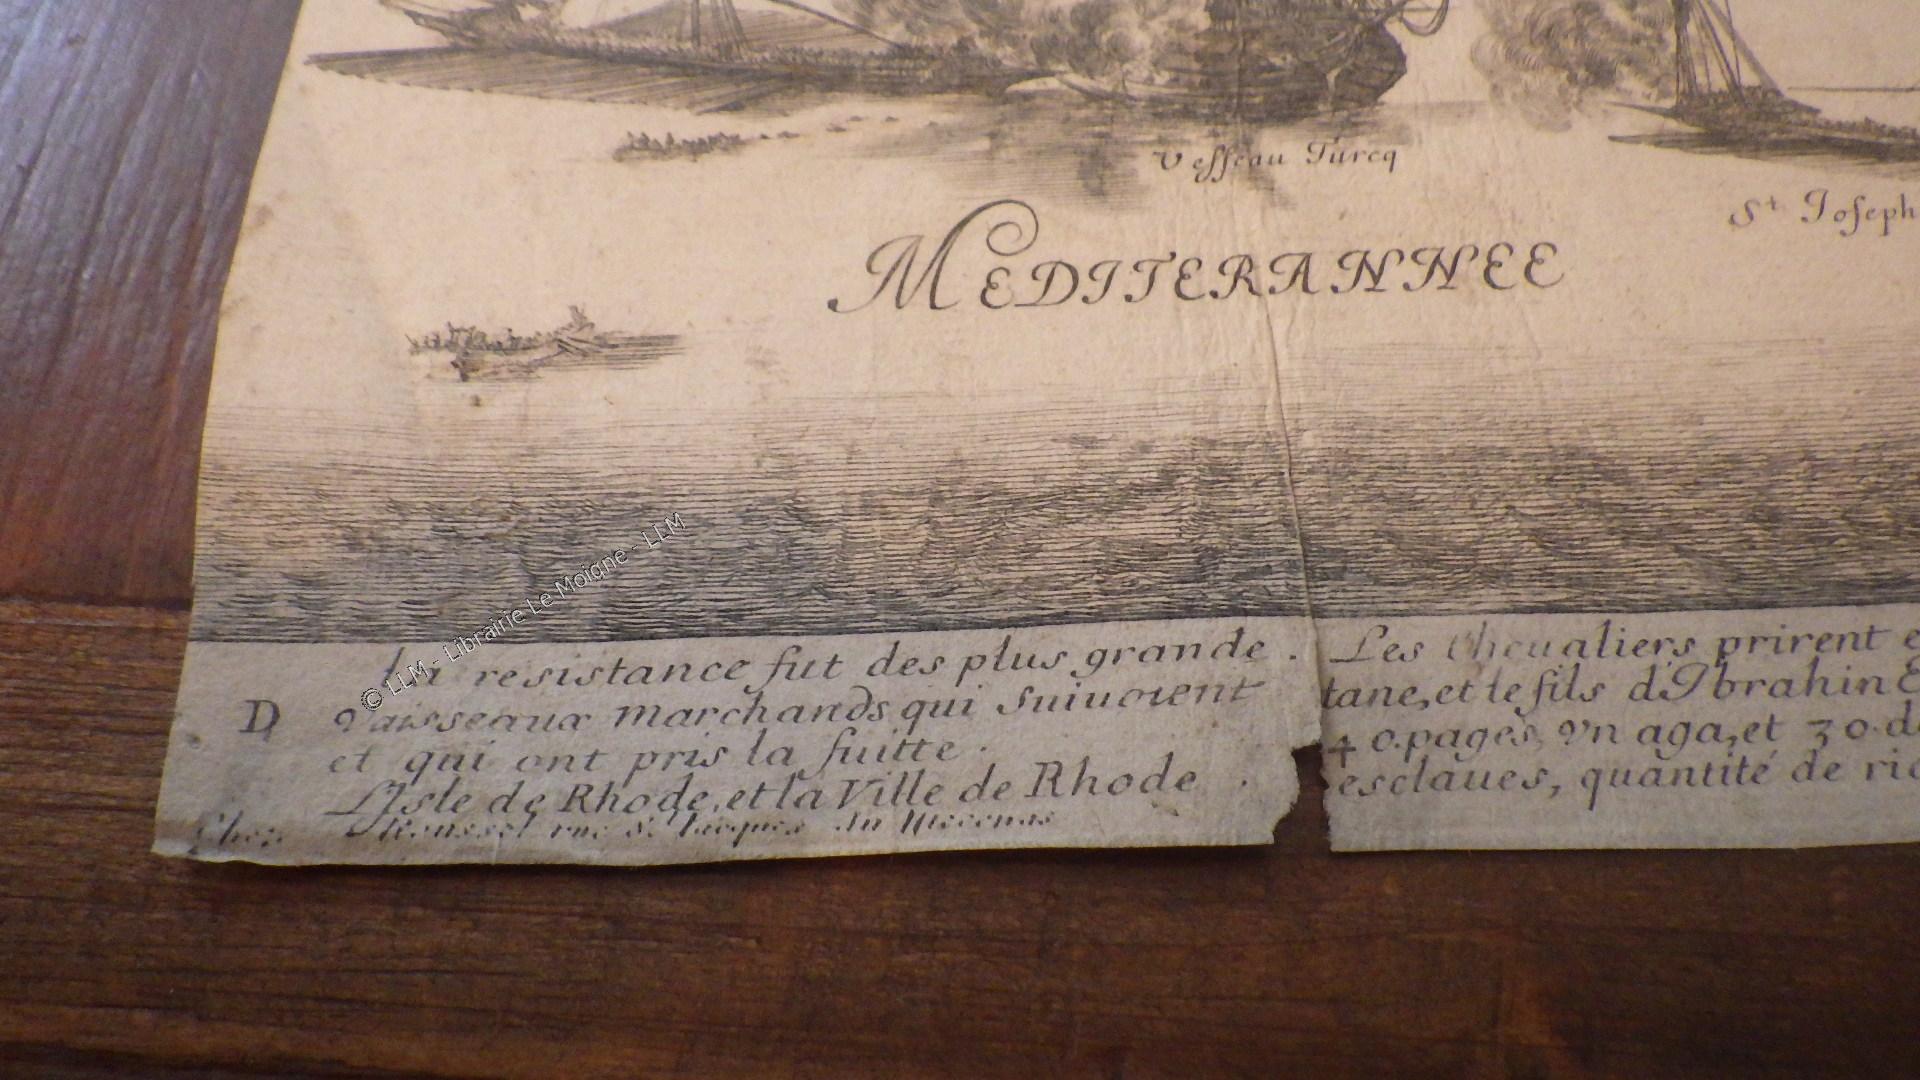 Vesseau Turcq
St Ioseph
MEDITERANNEE
la resistance fut des plus grande.
D Vaisseaux marchands qui suiuoient
et qui ont pris la fuitte.
L'Isle de Rhode, et la Ville de Rhode.
Chez Roussel rue St Iacques Au Mecenas
Les Cheualiers prirent
tane, et le fils d'Ibrahin
40. pages, Vn aga, et 30.
esclaues, quantité de
© LLM - Librairie Le Moigne - LLM